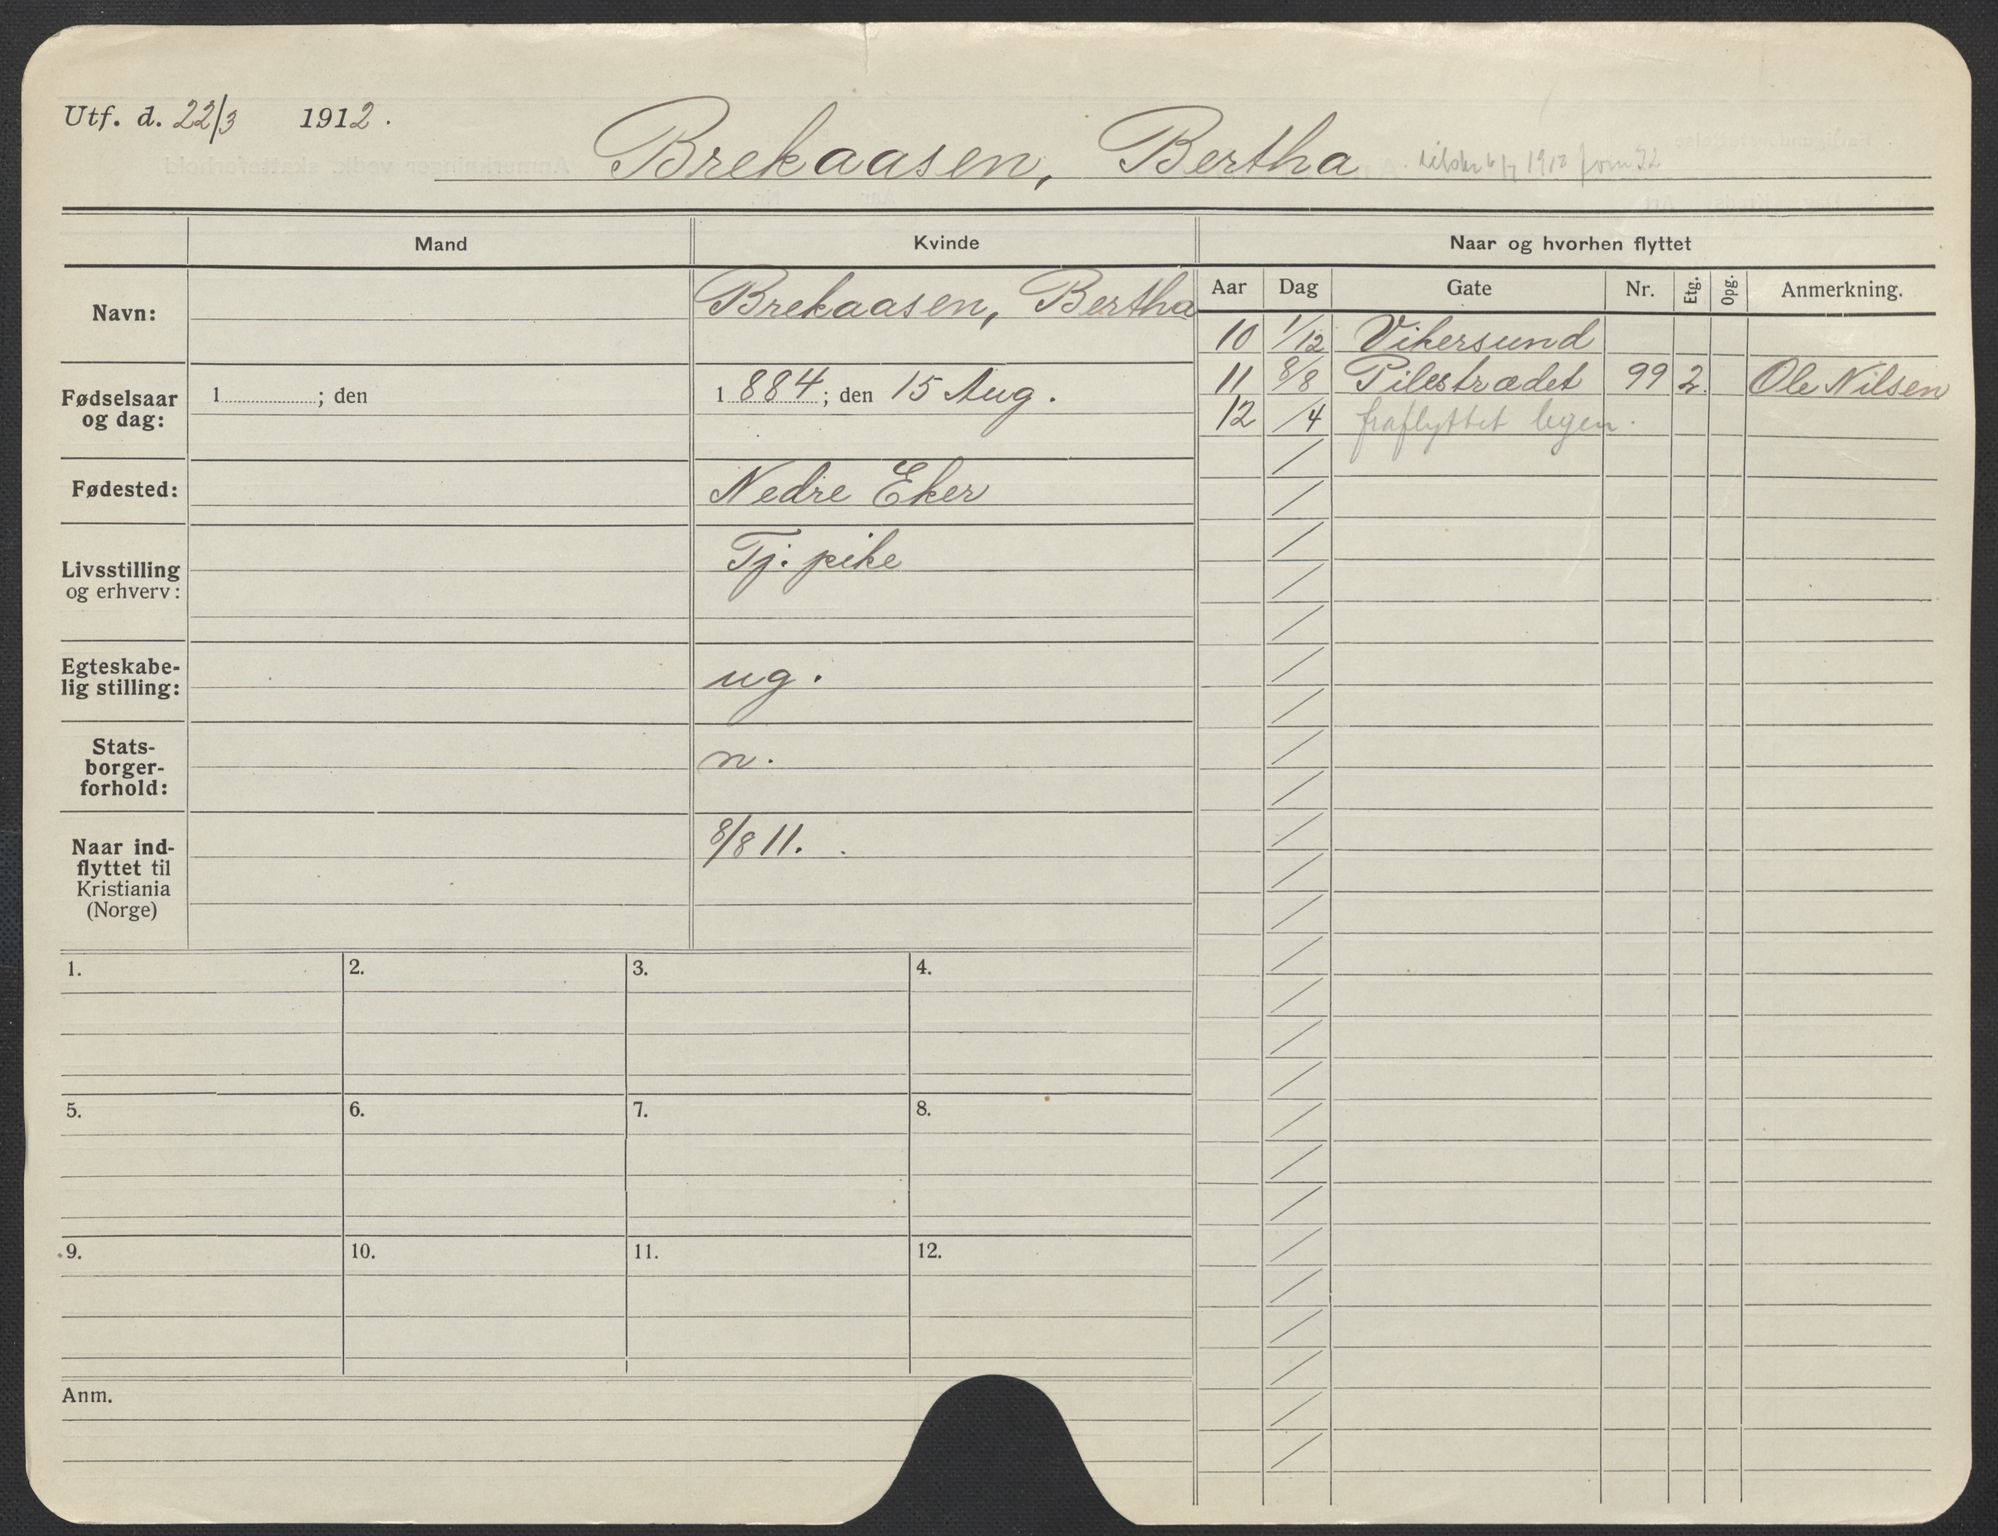 Utf. d. 22/3 1912.
Brekaasen, Bertha
1912
Mand
Kvinde
Naar og hvorhen flyttet
Aar Dag Gate Nr. Etg. Opg. Anmerkning.
Navn: Brekaasen, Bertha
10 1/12 Vikersund
11 8/8 Pilestrædet 99 2. Ole Nilsen
12 /4 fraflyttet byen.
Fødselsaar og dag:
1 ; den
1884; den 15 Aug.
Fødested: Nedre Eker
Livsstilling
og erhverv: Tj. pike
Egteskabe-
lig stilling: ug.
Stats-
borger-
forhold: n.
Naar ind-
flyttet til
Kristiania
(Norge)
8/8 11.
1. 2. 3. 4.
5. 6. 7. 8.
9. 10. 11. 12.
Anm.